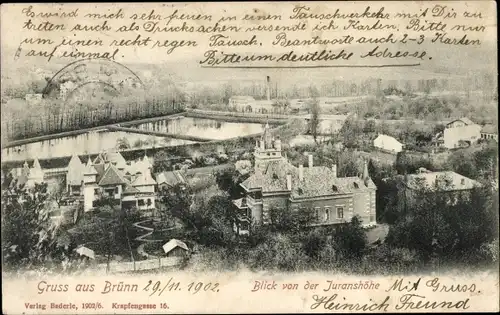 Es wird mich sehr freuen in einen Tauschverkehr mit Dir zu
treten auch als Drucksachen versende ich Karten. Bitte nur
nur um einen recht regen Tausch. Beantworte auch 2-3 Karten
auf einmal.
Bitte um deutliche Adresse.
Gruss aus Brünn 29/11. 1902.
Blick von der Juranshöhe
Mit Gruss.
Heinrich Freund
Verlag Baderle, 1902/6. Krapfengasse 16.